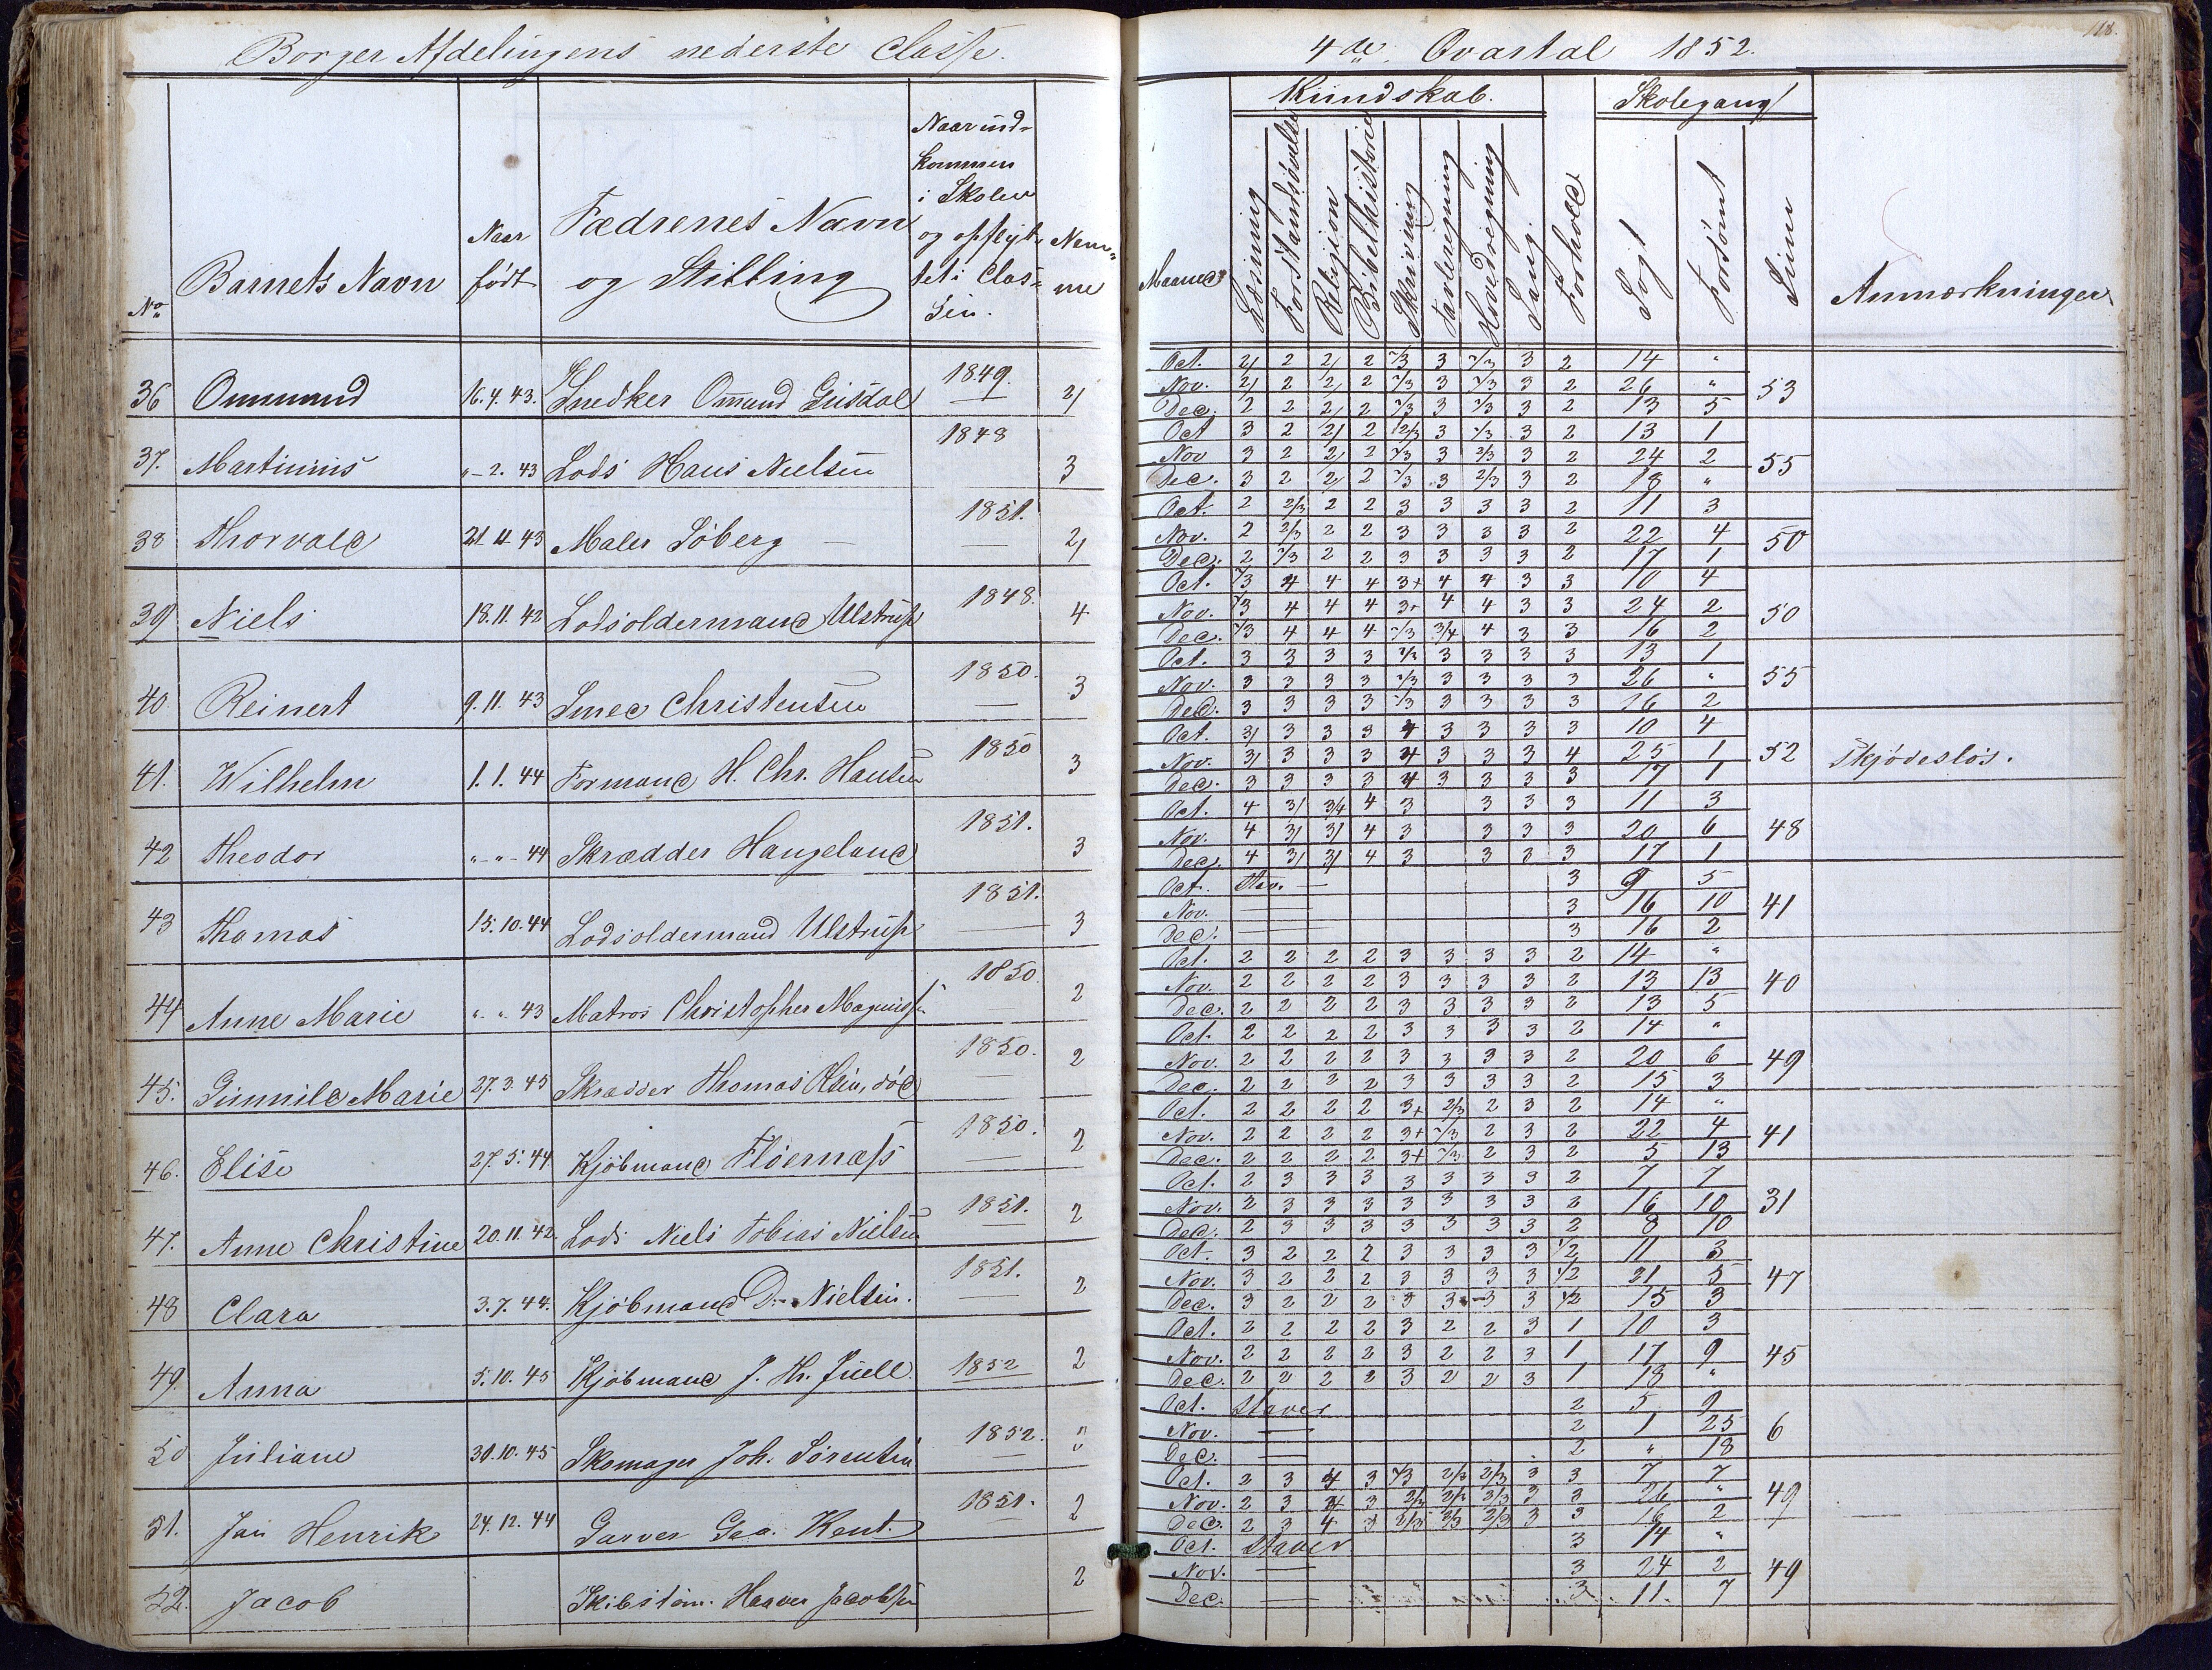 Borger Afdelingens nederste Classe.
No
Barnets Navn
Naar
født
Fædrenes Navn
og Stilling
Naar ind-
kommen
i Skolen
og opflyt-
tet i Clas-
sen.
Nem-
me
36 Ommund 16.4.43. Snedker Ommund Giisdal 1849. 2/
37. Martinius „-2. 43 Lods Hans Nielsen 1848 3
38 Thorvald 21.11.43 Maler Söberg — 1851. 2/
39 Niels 18.11.42 Lodsoldermand Ulstrup 1848. 4
40 Reinert 9.11.43 Smed Christensen 1850. 3
41. Wilhelm 1.1.44 Formand H. Chr. Hansen 1850 3
42 Theodor „-„-44 Skrædder Haugeland 1851. 3
43 Thomas 15.10.44 Lodsoldermand Ulstrup 1851. 3
44 Anne Marie „-„. 43 Matros Christopher 1850. 2
45. Gunnild Marie 27.3.45 Skrædder Thomas Olsen, död 1850. 2
46. Elise 27.5.44. Kjöbmand Flöernæss 1850. 2
47. Anne Christine 20.11.42. Lods Niels Tobias Nielsen 1851. 2
48 Clara 3.7.44. Kjöbmand D. Nielsen. 1851. 2
49. Anna 5.10.45 Kjöbmand J. Th. Juell. 1852 2
50 Juliane 31.10.45 Skomager Joh. Sörensen 1852.
51. Jan Henrik 24.12.44 Garver Geo. Kent. 1851. 2
52. Jacob Skibstöm. Haaver Jacobsen 2
4de Qvartal 1852.
118.
Kundskab.
Skolegang
Maaned
Læsning
Forstandsøvelse
Religion
Bibelhistorie
Skrivning
Tavleregning
Hovedregning
Sang
Forhold
Søgt
Forsömt
Sum
Anmærkninger
Oct. 2/ 2 2/ 2 2/3 3 2/3 3 2 14 „
Nov. 2/ 2 2/ 2 2/3 3 2/3 3 2 26 „ 53
Dec. 2 2 2/ 2 2/3 3 2/3 3 2 13 5
Oct 3 2 2/ 2 2/3 3 2/3 3 2 13 1
Nov 3 2 2/ 2 2/3 3 2/3 3 2 24 2 55
Dec. 3 2 2/ 2 2/3 3 2/3 3 2 18 „
Oct. 2 2/3 2 2 3 3 3 3 2 11 3
Nov. 2 2/3 2 2 3 3 3 3 2 22 4 50
Dec. 2 2/3 2 2 3 3 3 3 2 17 1
Oct. 2/3 4 4 4 3+ 4 4 3 3 10 4
Nov. 2/3 4 4 4 3+ 4 4 3 3 24 2 50
Dec. 2/3 4 4 4 2/3 3/4 4 3 3 16 2
Oct. 3 3 3 3 2/3 3 3 3 3 13 1
Nov. 3 3 3 3 2/3 3 3 3 3 26 „ 55
Dec. 3 3 3 3 2/3 3 3 3 3 16 2
Oct. 3/ 3 3 3 4 3 3 3 3 10 4
Nov. 3/ 3 3 3 4 3 3 3 4 25 1 52 Skjödeslös.
Dec. 3 3 3 3 4 3 3 3 3 17 1
Oct. 4 3/ 3/4 4 3 3 3 3 11 3
Nov. 4 3/ 3/ 4 3 3 3 3 20 6 48
Dec. 4 3/ 3/ 4 3 3 3 3 17 1
Oct. Stav. — 3 9 5
Nov. — 3 16 10 41
Dec. — 3 16 2
Oct. 2 2 2 2 3 3 3 3 2 14 „
Nov. 2 2 2 2 3 3 3 3 2 13 13 40
Dec. 2 2 2 2 3 3 3 3 2 13 5
Oct. 2 2 2 2 3 3 3 3 2 14 „
Nov. 2 2 2 2 3 3 3 3 2 20 6 49
Dec. 2 2 2 2 3 3 3 3 2 15 3
Oct. 2 2 2 2 3+ 2/3 2 3 2 14 „
Nov. 2 2 2 2 3+ 2/3 2 3 2 22 4 41
Dec. 2 2 2 2 3+ 2/3 2 3 2 5 13
Oct. 2 3 3 3 3 3 3 3 2 7 7
Nov. 2 3 3 3 3 3 3 3 2 16 10 31
Dec. 2 3 3 3 3 3 3 3 2 8 10
Oct. 3 2 2 2 3 3 3 3 1/2 11 3
Nov. 3 2 2 2 3 3 3 3 1/2 21 5 47
Dec. 3 2 2 2 3 3 3 3 1/2 15 3
Oct. 2 2 2 2 3 2 2 3 1 10 3
Nov. 2 2 2 2 3 2 2 3 1 17 9 45
Dec. 2 2 2 2 3 2 2 3 1 18 „
Oct. Staver 2 5 9
Nov. — 2 1 25 6
Dec. — 2 „ 18
Oct. 2 3 4 3 2/3 2/3 2/3 3 3 7 7
Nov. 2 3 4 3 2/3 2/3 2/3 3 3 26 „ 49
Dec. 2 3 4 3 2/3 2/3 2/3 3 3 16 2
Oct. Staver 3 14 „
Nov. — 3 24 2 49
Dec. — 3 11. 7